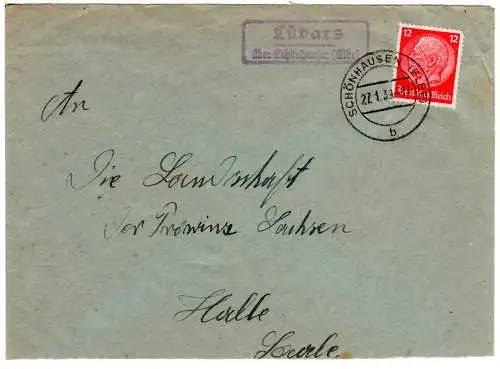 Lübars
über Schönhausen (Elbe)
12 12
Deutsches Reich
SCHÖNHAUSEN (ELBE)
27.1.39
b
An
Die Landschaft
der Provinz Sachsen
Halle
Saale